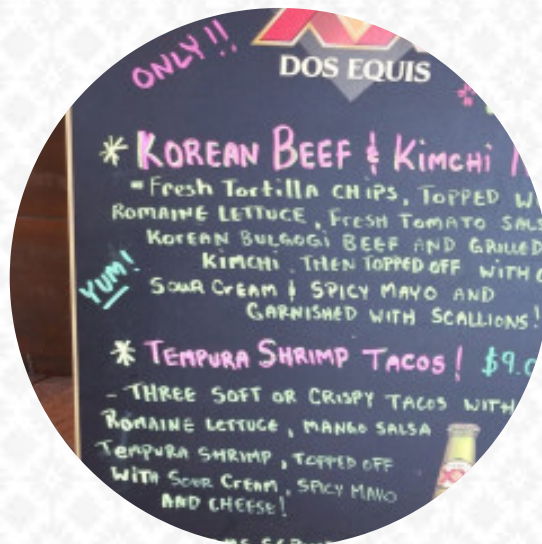 ONLY!!
DOS EQUIS
* KOREAN BEEF & KIMCHI
- FRESH TORTILLA CHIPS, TOPPED
ROMAINE LETTUCE, FRESH TOMATO
KOREAN BULGOGI BEEF AND GRILLED
KIMCHI. THEN TOPPED OFF WITH
YUM!
SOUR CREAM & SPICY MAYO AND
GARNISHED WITH SCALLIONS!
* TEMPURA SHRIMP TACOS! $9.0
- THREE SOFT OR CRISPY TACOS WITH
ROMAINE LETTUCE, MANGO SALSA
TEMPURA SHRIMP, TOPPED OFF
WITH SOUR CREAM, SPICY MAYO
AND CHEESE!